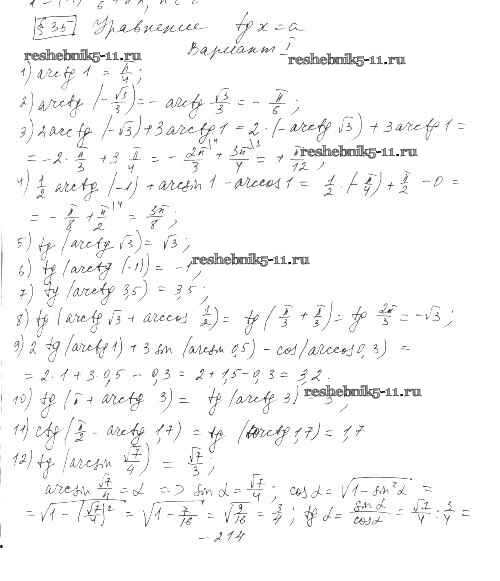 § 35 Уравнение tg x = a
Вариант I
reshebnik5-11.ru
1) arctg 1 = π/4;
reshebnik5-11.ru
2) arctg (-√3/3) = - arctg √3/3 = - π/6;
3) 2arctg (-√3) + 3arctg 1 = 2 · (-arctg √3) + 3arctg 1 =
= -2 · π/3 + 3 π/4 = - 2π/3 + 3π/4 = + π/12,
reshebnik5-11.ru
4) 1/2 arctg (-1) + arcsin 1 - arccos 1 = 1/2 · (-π/4) + π/2 - 0 =
= - π/8 + π/2 = 3π/8;
5) tg (arctg √3) = √3;
6) tg (arctg (-1)) = -1,
reshebnik5-11.ru
7) tg (arctg 3,5) = 3,5;
8) tg (arctg √3 + arccos 1/2) = tg (π/3 + π/3) = tg 2π/3 = -√3;
9) 2 tg (arctg 1) + 3 sin (arcsin 0,5) - cos (arccos 0,3) =
= 2 · 1 + 3 · 0,5 - 0,3 = 2 + 1,5 - 0,3 = 3,2.
reshebnik5-11.ru
10) tg (π + arctg 3) = tg (arctg 3) = 3;
11) ctg (π/2 - arctg 1,7) = tg (arctg 1,7) = 1,7
12) tg (arcsin √7/4) = √7/3;
arcsin √7/4 = α => sin α = √7/4; cos α = √1 - sin² α =
= √1 - (√7/4)² = √1 - 7/16 = √9/16 = 3/4; tg α = sin α/cos α = √7/4 : 3/4 =
- 214